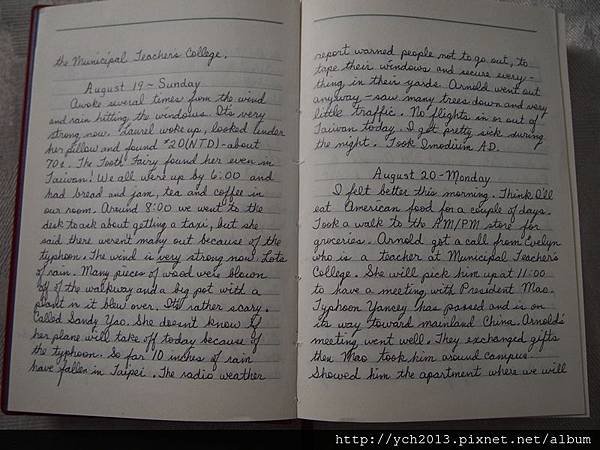 the Municipal Teacher's College.
August 19 ~ Sunday
Awoke several times from the wind
and rain hitting the windows. It's very
strong now. Laurel woke up, looked under
her pillow and found $20 (NTD) - about
70¢. The Tooth Fairy found her even in
Taiwan! We all were up by 6:00 and
had bread and jam, tea and coffee in
our room. Around 8:00 we went to the
desk to ask about getting a taxi, but she
said there weren't many out because of the
typhoon. The wind is very strong now. Lots
of rain. Many pieces of wood were blown
off of the walkway and a big pot with a
plant in it blew over. It's rather scary.
Called Sandy Yao. She doesn't know if
her plane will take off today because of
the typhoon. So far 10 inches of rain
have fallen in Taipei. The radio weather
report warned people not to go out, to
tape their windows and secure every-
thing in their yards. Arnold went out
anyway - saw many trees down and very
little traffic. No flights in or out of
Taiwan today. I got pretty sick during
the night. Took Imodium AD.
August 20 - Monday
I felt better this morning. Think I'll
eat American food for a couple of days.
Took a walk to the AM/PM store for
groceries. Arnold got a call from Evelyn
who is a teacher at Municipal Teacher's
College. She will pick him up at 11:00
to have a meeting with President Mao.
Typhoon Yancey has passed and is on
its way toward mainland China. Arnold's
meeting went well. They exchanged gifts
then Mao took him around campus.
Showed him the apartment where we will
http://ych2013.pixnet.net/album